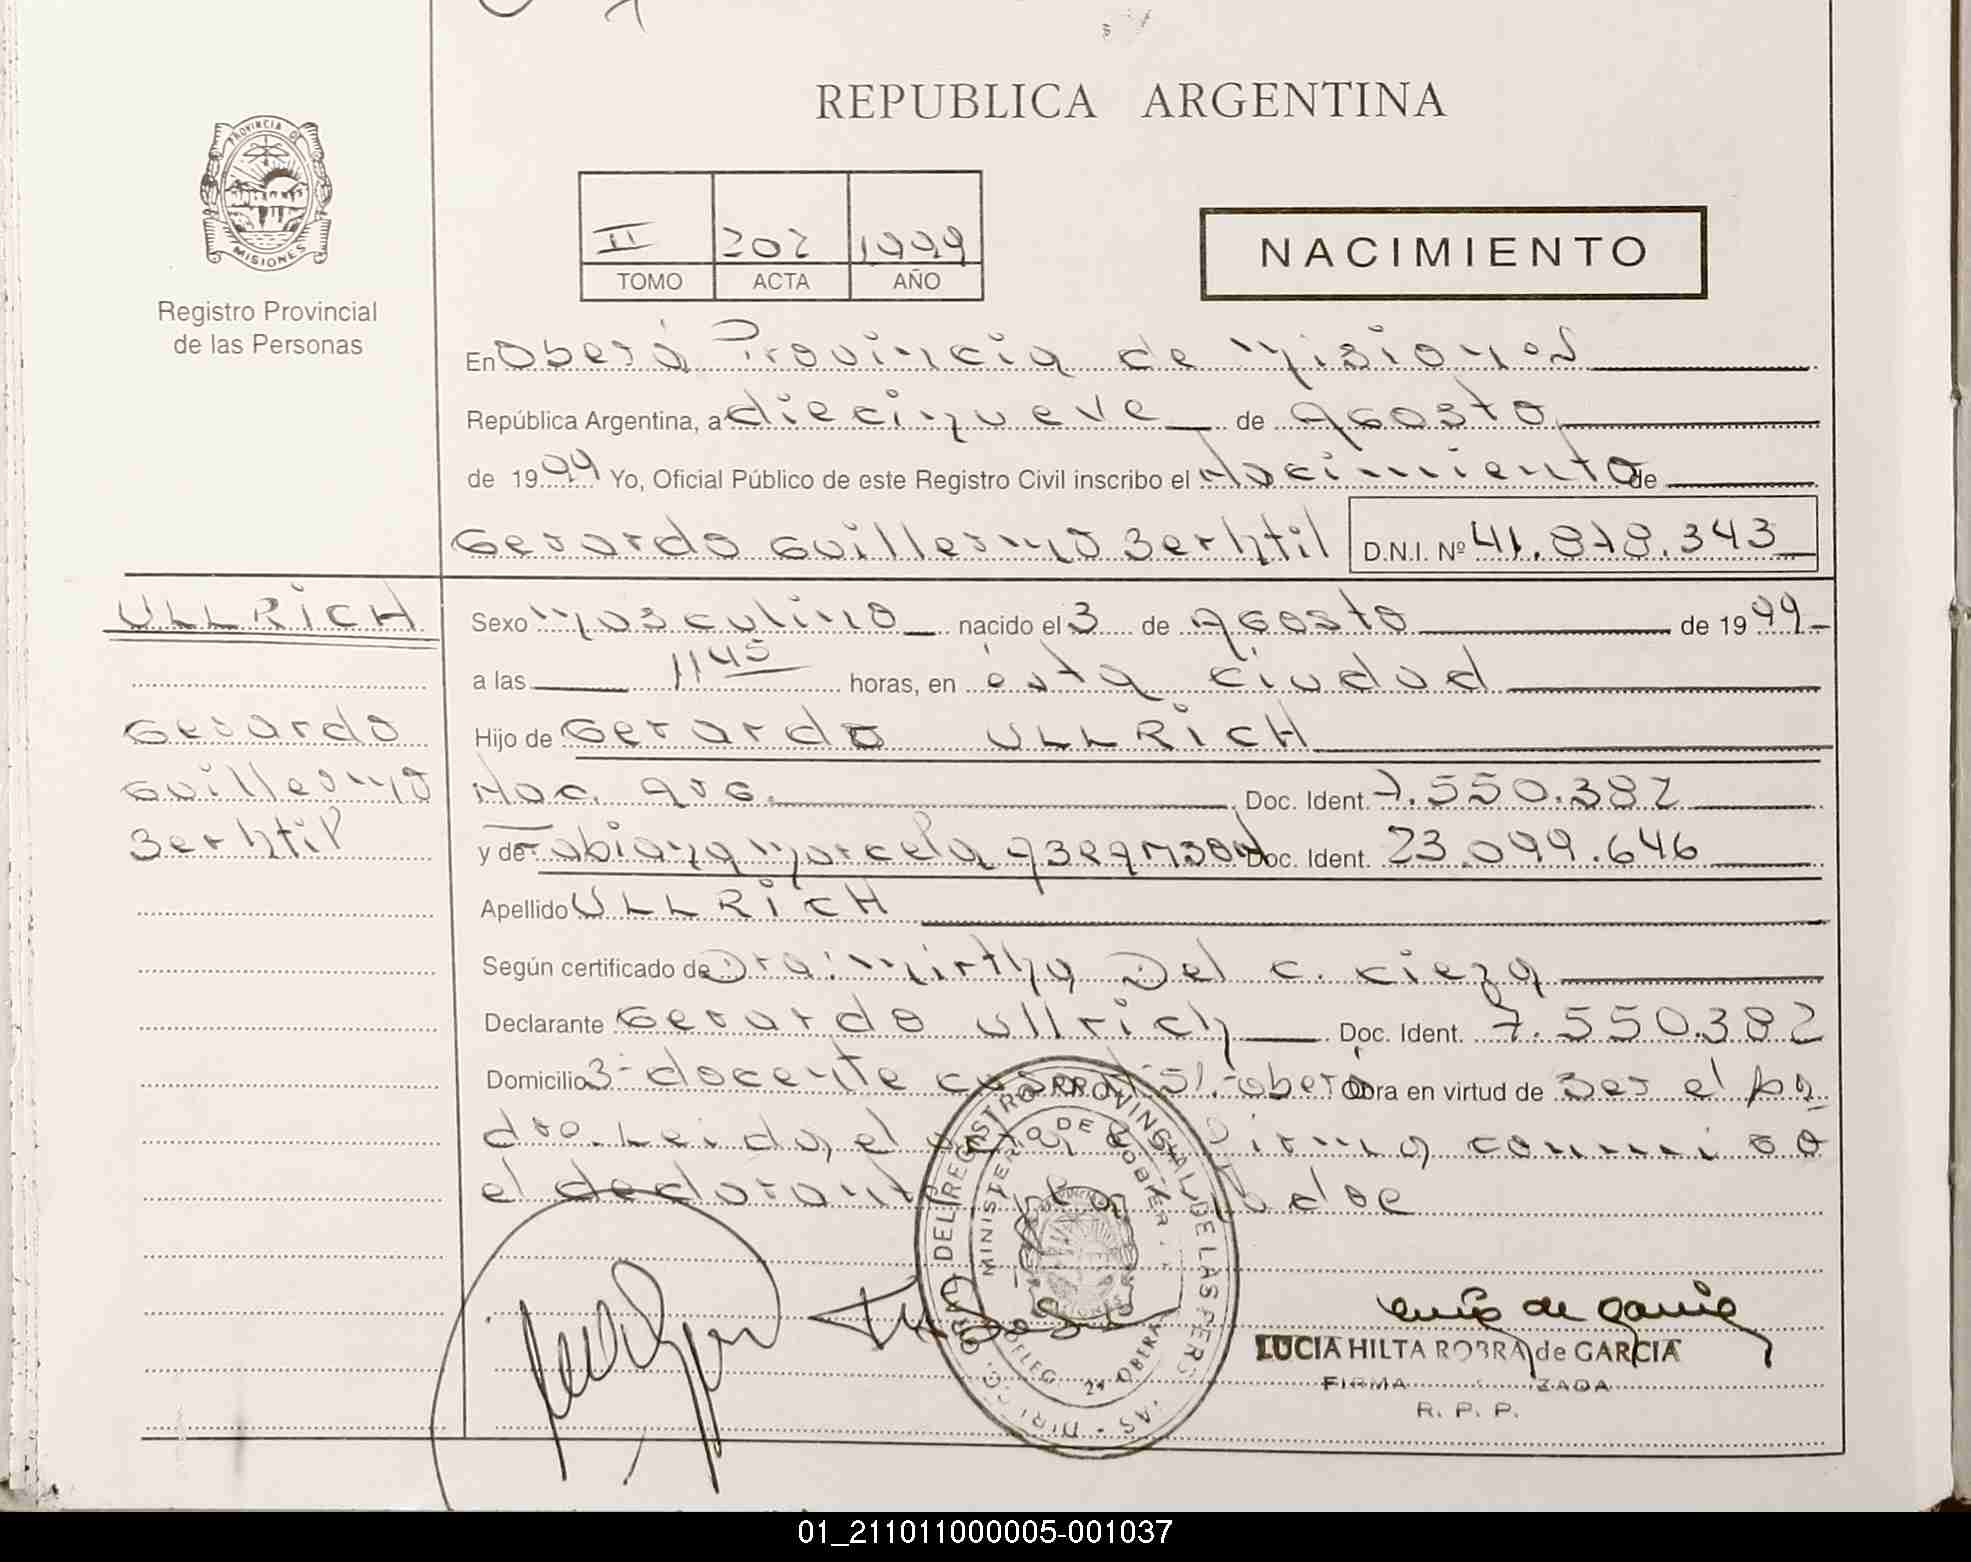 REPUBLICA ARGENTINA
PROVINCIA DE
MISIONES
Registro Provincial
de las Personas
II 202 1999
TOMO ACTA AÑO
NACIMIENTO
En Oberá Provincia de Misiones
República Argentina, a diecinueve de Agosto
de 1999 Yo, Oficial Público de este Registro Civil inscribo el Nacimiento de
Gerardo Guillermo Berhtil D.N.I. Nº 41.878.343
ULLRICH
Sexo Masculino nacido el 3 de Agosto de 1999
a las 1145 horas, en ésta ciudad
Gerardo
Hijo de Gerardo ULLRICH
Guillermo
Nac. Arg. Doc. Ident. 7.550.382
Berhtil
y de Fabiana Marcela Doc. Ident. 23.099.646
Apellido ULLRICH
Según certificado de Dra. Mirtha Del C. Cieza
Declarante Gerardo Ullrich Doc. Ident. 7.550.382
Domicilio docente Oberá Obra en virtud de ser el pa
dre. Leida el acta firma conmigo
el declarante
DEL REGISTRO PROVINCIAL DE LAS PERS
MINISTERIO DE GOBIER
DELEG. OBERA
LUCIA HILTA ROBRA de GARCIA
FIRMA ZADA
R. P. P.
01_211011000005-001037